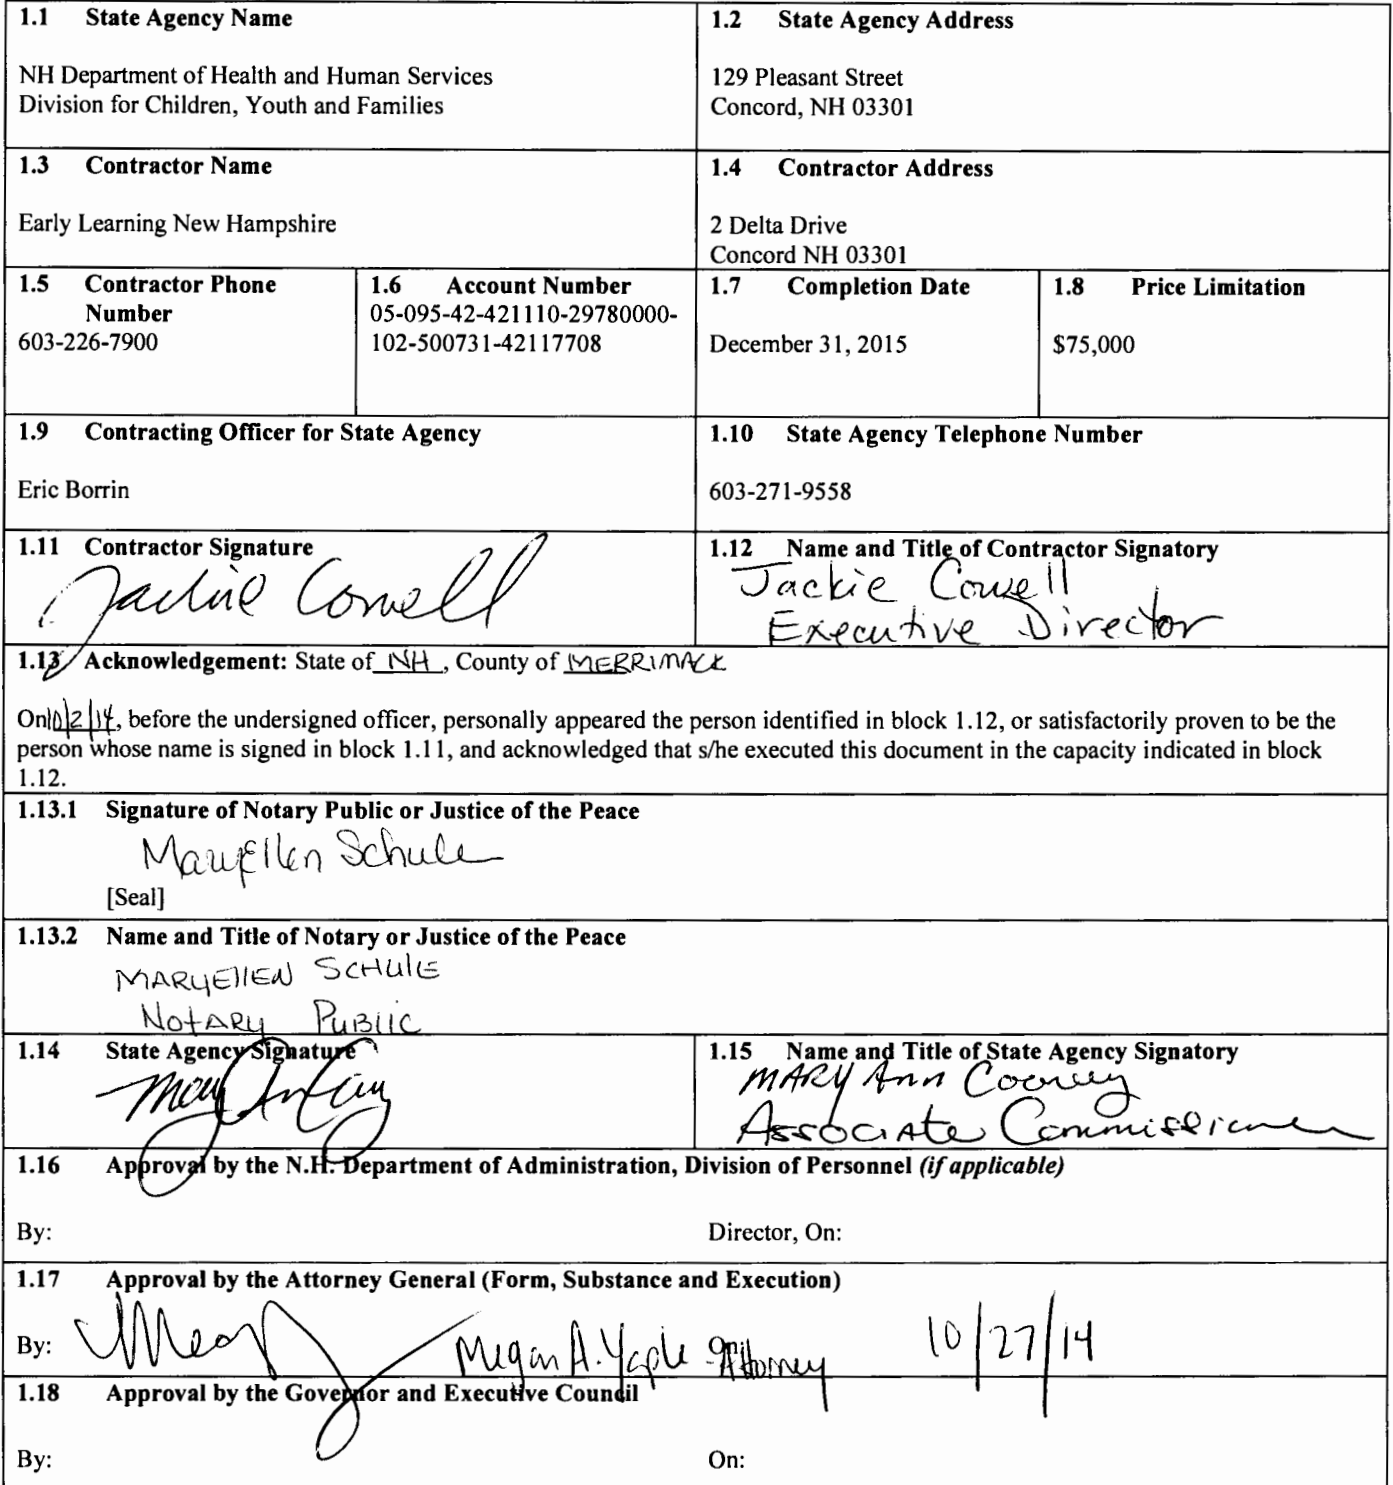 1.1 State Agency Name
NH Department of Health and Human Services
Division for Children, Youth and Families
1.2 State Agency Address
129 Pleasant Street
Concord, NH 03301
1.3 Contractor Name
Early Learning New Hampshire
1.4 Contractor Address
2 Delta Drive
Concord NH 03301
1.5 Contractor Phone
Number
603-226-7900
1.6 Account Number
05-095-42-421110-29780000-
102-500731-42117708
1.7 Completion Date
December 31, 2015
1.8 Price Limitation
$75,000
1.9 Contracting Officer for State Agency
Eric Borrin
1.10 State Agency Telephone Number
603-271-9558
1.11 Contractor Signature
Jackie Cowell
1.12 Name and Title of Contractor Signatory
Jackie Cowell
Executive Director
1.13 Acknowledgement: State of NH, County of MERRIMACK
On 10/2/14, before the undersigned officer, personally appeared the person identified in block 1.12, or satisfactorily proven to be the
person whose name is signed in block 1.11, and acknowledged that s/he executed this document in the capacity indicated in block
1.12.
1.13.1 Signature of Notary Public or Justice of the Peace
MaryEllen Schule
[Seal]
1.13.2 Name and Title of Notary or Justice of the Peace
MARYEllEN SCHUlE
NOtARY PUBlIC
1.14 State Agency Signature
1.15 Name and Title of State Agency Signatory
MARY Ann Cooney
Associate Commissioner
1.16 Approval by the N.H. Department of Administration, Division of Personnel (if applicable)
By:
Director, On:
1.17 Approval by the Attorney General (Form, Substance and Execution)
By: Megan A. Yaple - Attorney On: 10/27/14
1.18 Approval by the Governor and Executive Council
By:
On: